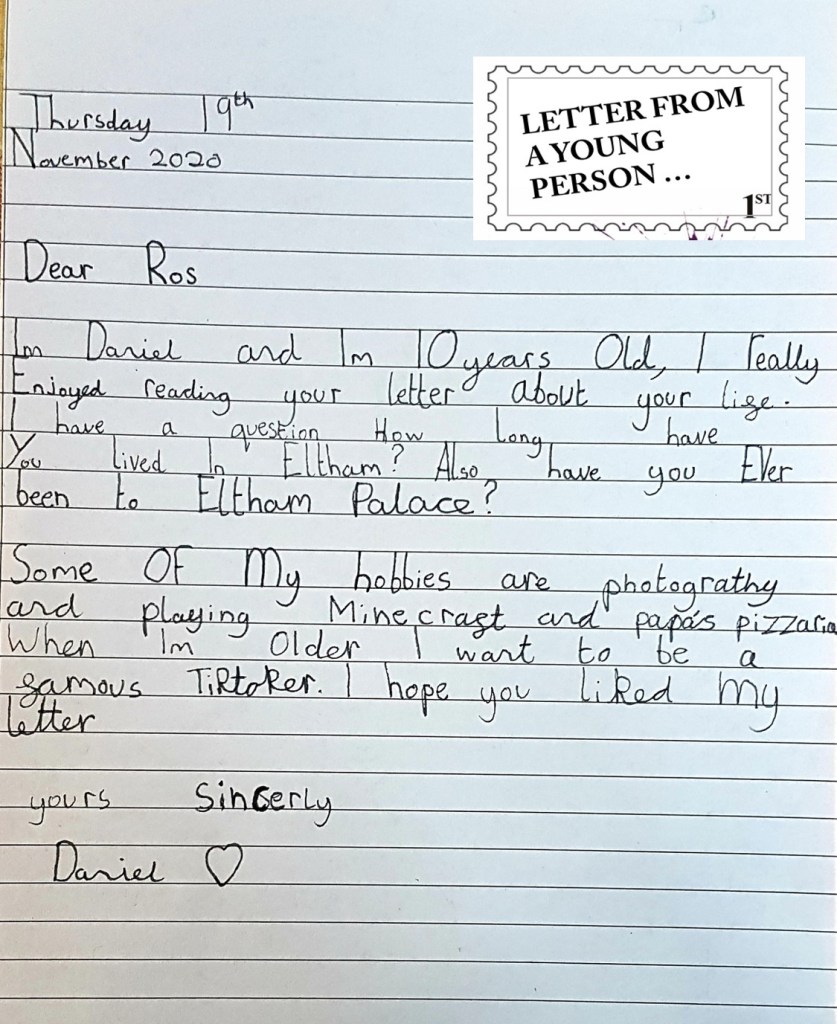 Thursday 19th
November 2020
LETTER FROM
A YOUNG
PERSON ...
1ST
Dear Ros
Im Daniel and Im 10 years Old, I really
Enjoyed reading your letter about your life.
I have a question How long have
You lived In Eltham? Also have you Ever
been to Eltham Palace?
Some OF My hobbies are photograthy
and playing Minecraft and papa's pizzaria
When Im Older I want to be a
famous TikToker. I hope you liked My
letter
yours Sincerly
Daniel ♡